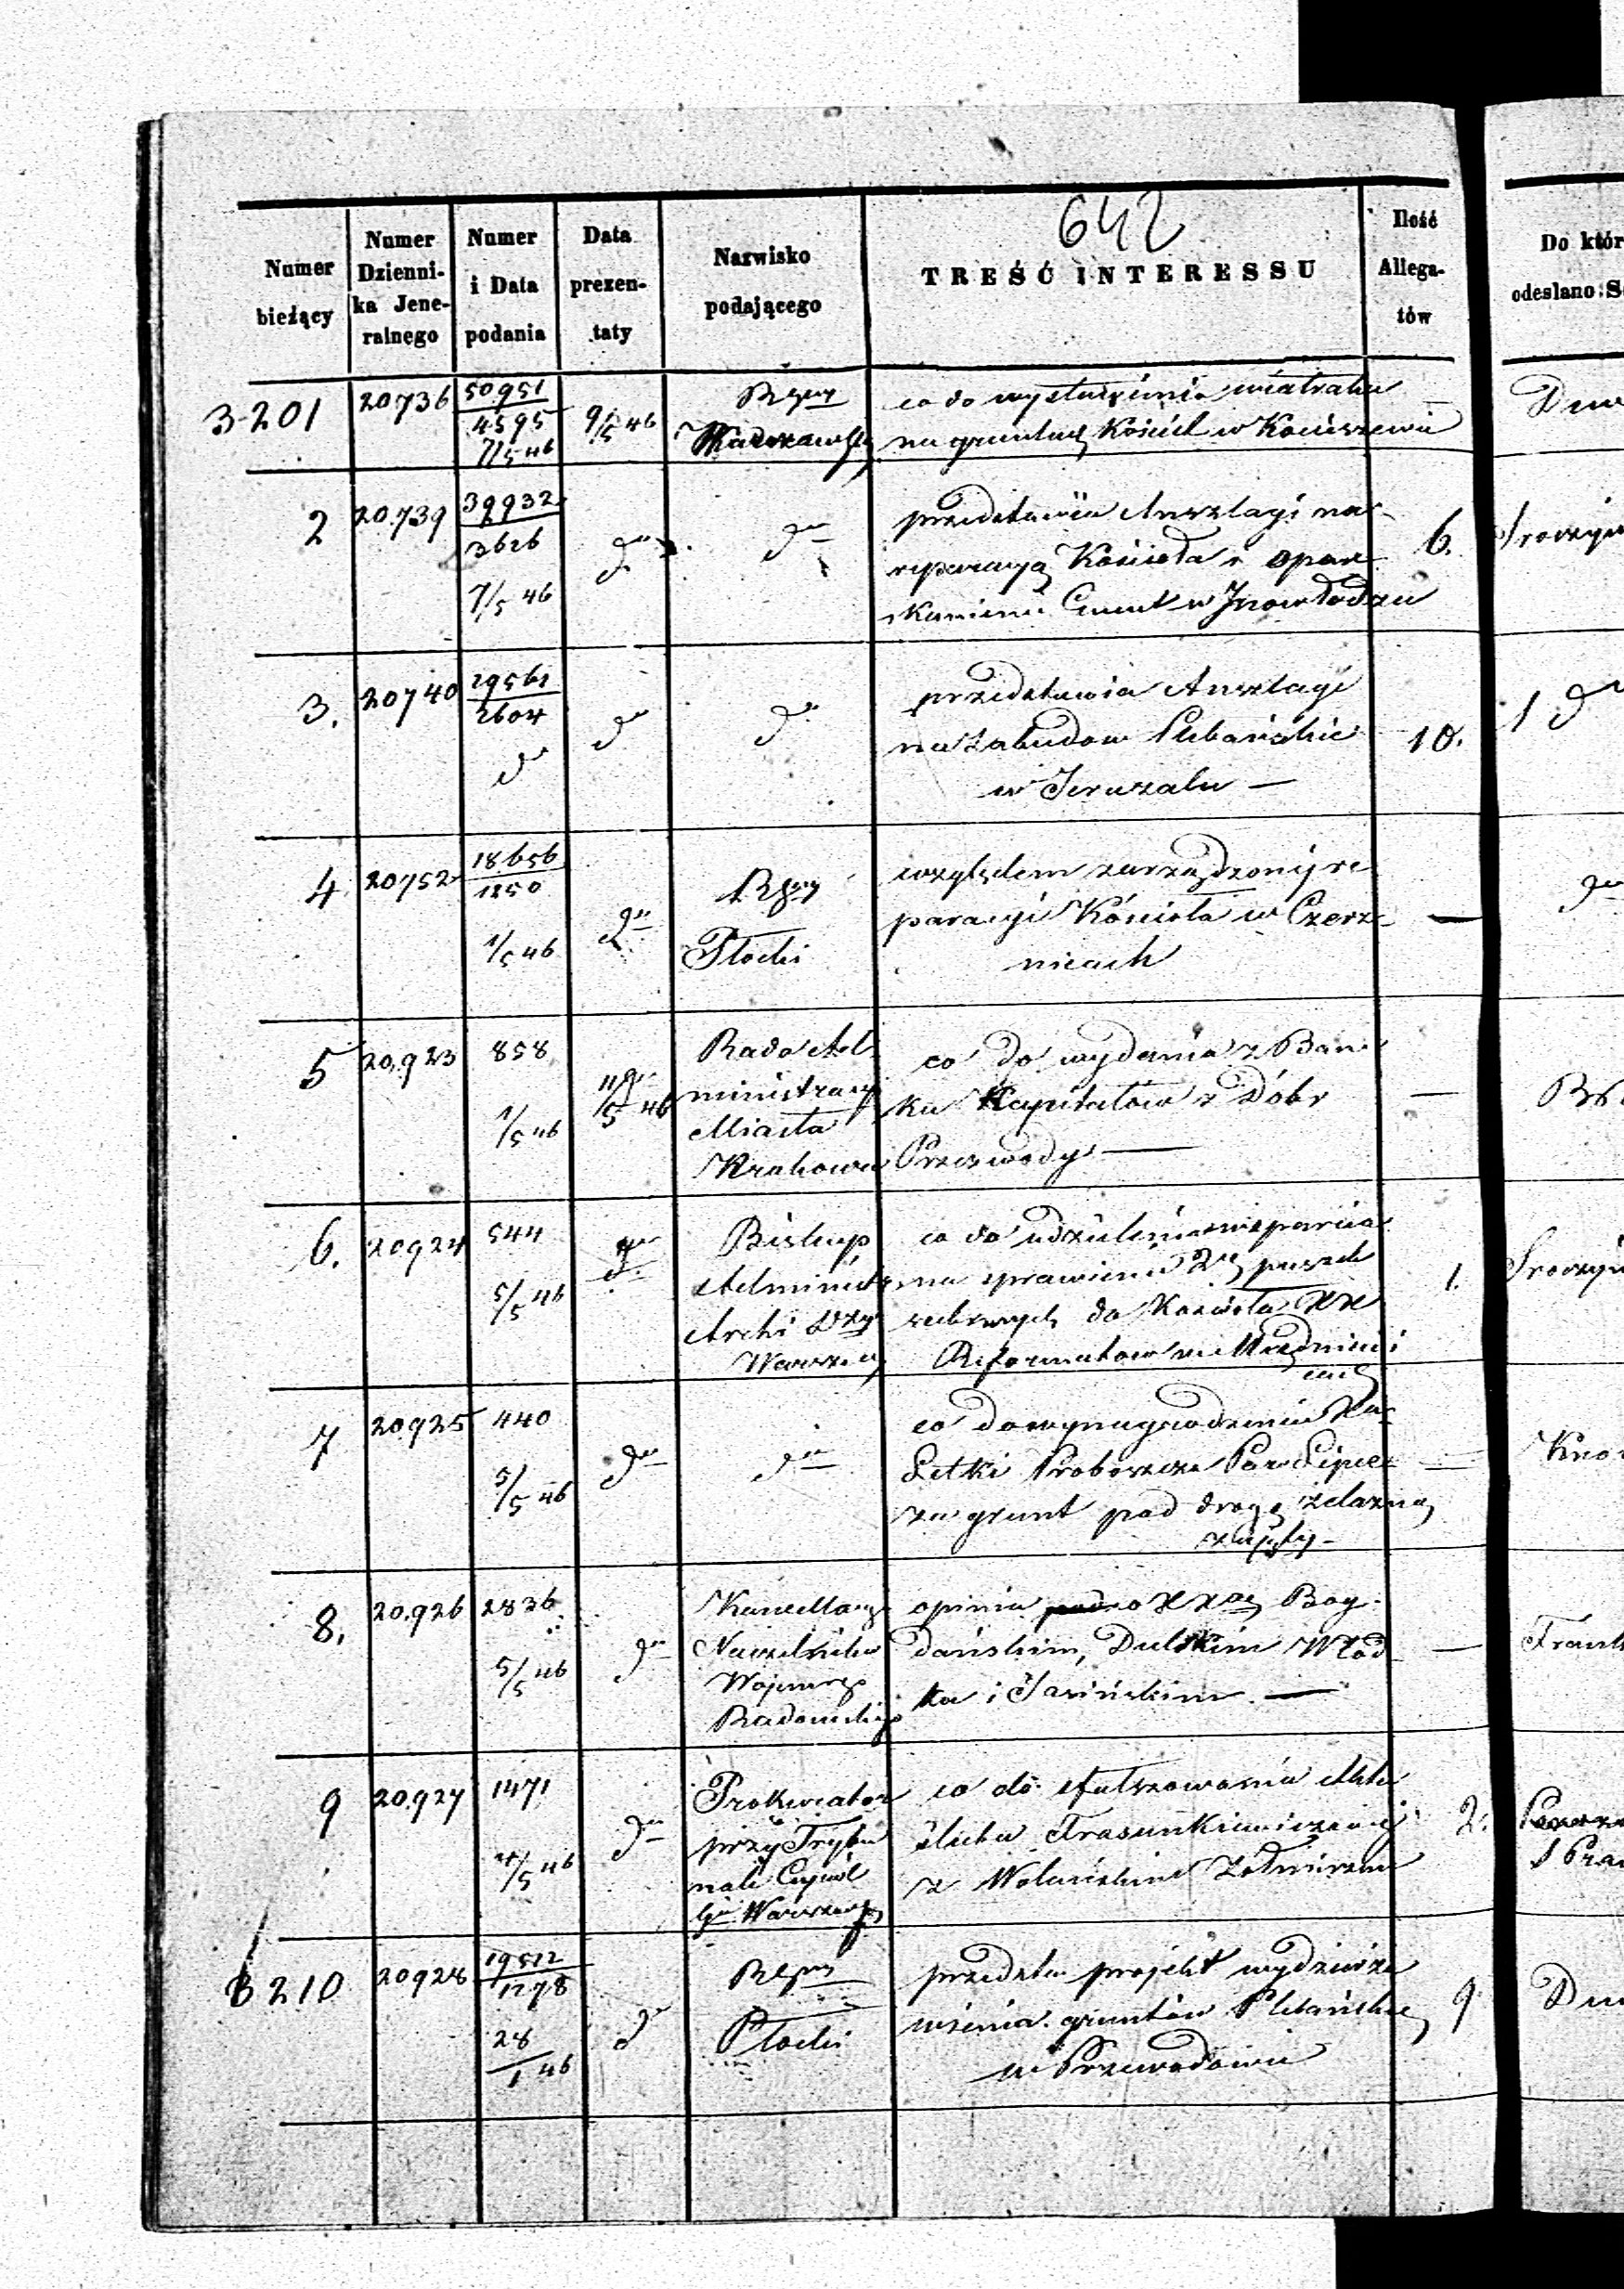 642
Numer bieżący | Numer Dziennika Jeneralnego | Numer i Data podania | Data prezentaty | Nazwisko podającego | TREŚĆ INTERESSU | Ilość Allegatów | Do któr odesłano S
3201 | 20736 | 50951 / 4595 7/5 46 | 9/5 46 | Rząd Warszawski | co do wystawienia wiatraka
na gruntach Kościel w Kociszewie
2 | 20.739 | 39932 / 3626 7/5 46 | do | do | przedstawia Anszlagi na
reperacyą Kościoła i opar
kanienie Cment w Inowłodzu | 6.
3. | 20740 | 29561 / 2604 do | do | do | przedstawia Anszlagi
na zabudow Plebańskie
w Jeruzalu — | 10.
4 | 20752 | 18.656 / 1250 1/5 46 | do | Rząd Płocki | względem zarządzonej re
paracyi Kościoła w Czer
nicach | — | do
5 | 20,923 | 858 1/5 46 | 11/5 46 | Rada Ad
ministracyj
Miasta
Krakowa | co do wydania z Ban
ku Kapitałów z Dóbr
Przezwody — | —
6. | 20924 | 544 5/5 46 | do | Biskup
Administr
Archi Dyy
Warszaw | co do udzielenia wsparcia
na sprawienie 2ch puszek
srebrnych do Kościoła XX
Reformatów | 1.
7 | 20925 | 440 5/5 46 | do | do | co do wynagrodzenia Xa
Letki Proboszcza Par Lipce
za grunt pod drogę żelazną
zajęty — | —
8. | 20.926 | 2836 5/5 46 | do | Kancellarya
Naczelnika
Wojennego
Radomskiego | opinia o XXach Bog
dańskim, Dulskim Włod
ka i Jasińskim. — | —
9 | 20.927 | 1471 4/5 46 | do | Prokurator
przy Trybu
nale Cywil
Gu Warszaws | co do sfałszowania Aktu
ślubu Frasunkiewiczowej
z Wolańskim Żołnierzem | 2.
3210 | 20928 | 19512 / 1278 28/1 46 | do | Rząd
Płocki | przedsta projekt wydzierża
wienia gruntów Plebańskich
w Przewodowie | 9